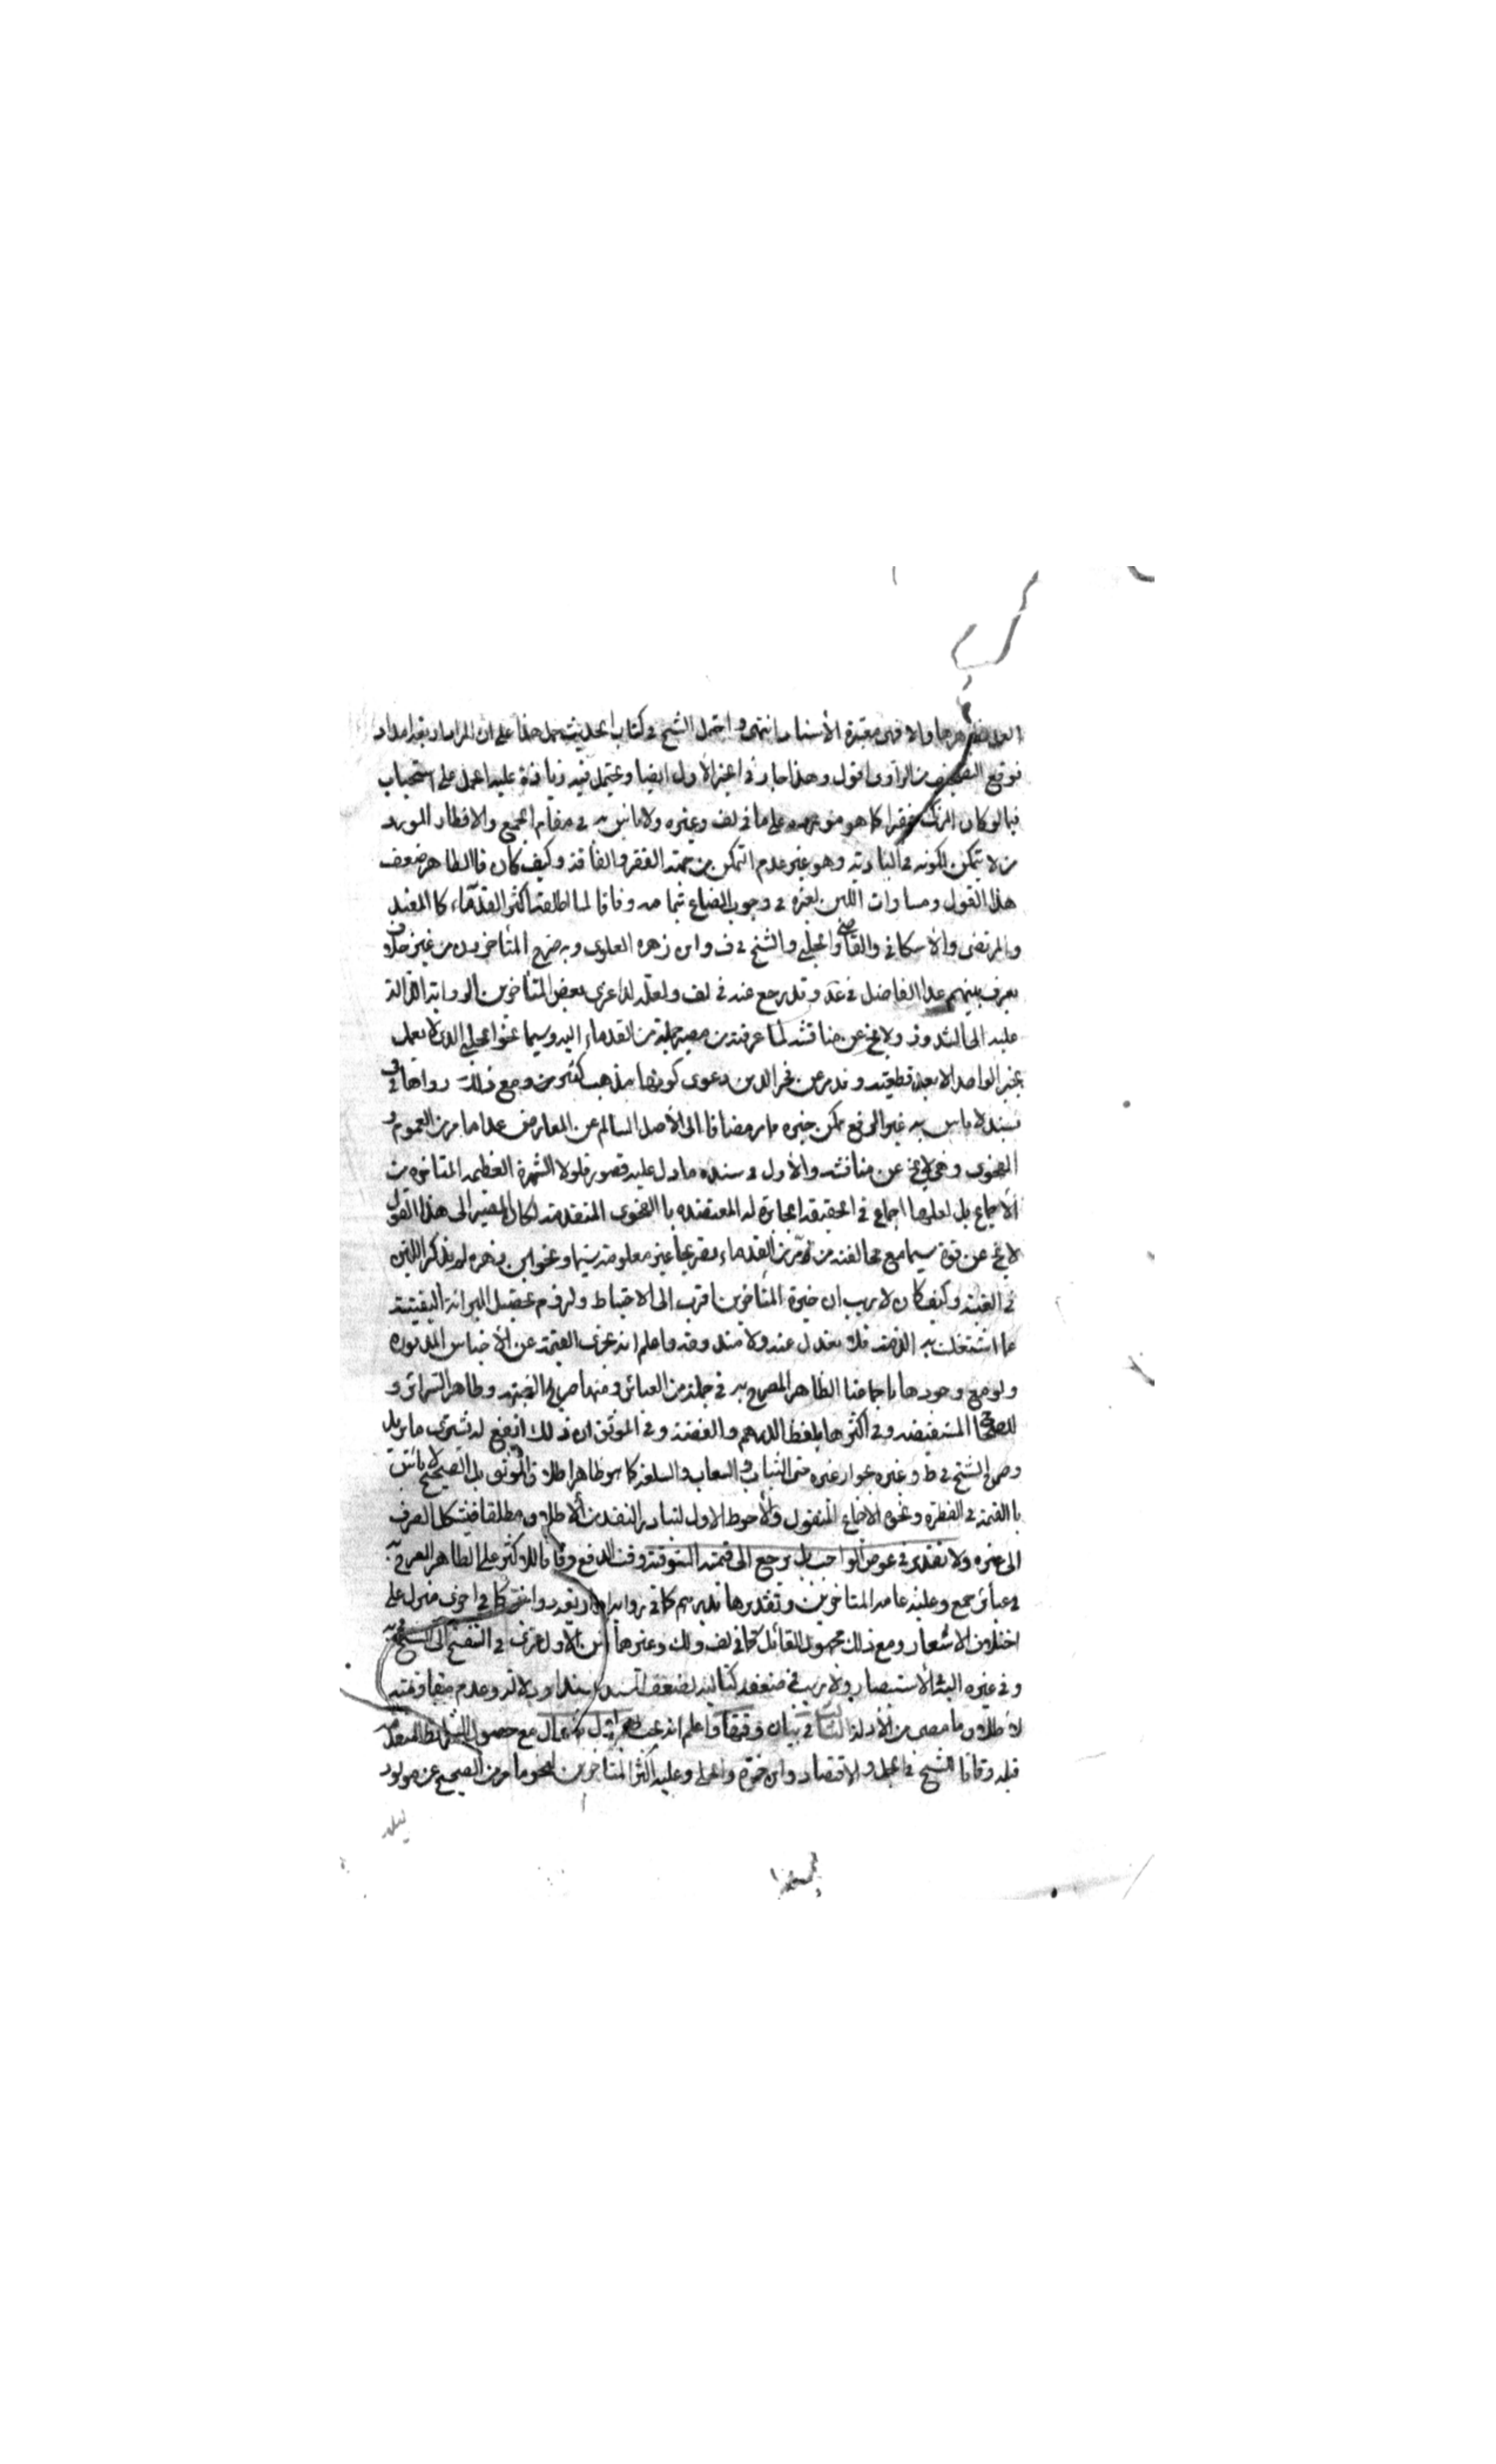 فهي معتبرة الأسناد انتهى واحتمل الشيخ في كتاب الحديث حمل هذا على ان المراد اربعة امداد
فوقع التصحيف من الراوي اقول وهذا جار في الخبر الأول ايضا ويحتمل فيه زيادة عليه الحمل على استحباب
فيما لو كان المزكي فقيرا كما هو مورده على ما في لف وغيره ولا باس به في مقام الجمع والافطار المورد
من لا يتمكن لكونه في البادية وهو غير عدم التمكن من جهة الفقر والفاقة وكيف كان فالظاهر ضعف
هذا القول ومساوات اللبن لغيره في وجوب الصاع تماما وفاقا لما اطلقه اكثر القدماء كالمفيد
والمرتضى والأسكافي والقاضي والحلبي والشيخ في ف وابن زهره العلوي وبه صرح المتاخرون من غير خلاف
يعرف بينهم عدا الفاضل في عد وقد رجع عنه في لف ولعله لذا عزى بعض المتأخرين الرواية الدالة
عليه الى الشذوذ ولا يخ عن مناقشة لما عرفته من مصير جملة من القدماء اليه وسيما نحو الحلي الذي لا يعمل
بخبر الواحد الا بعد قطعيته وندر عن فخر الدين دعوى كونها مذهب كثير ومع ذلك رواها في
بسند لا باس به غير الرفع يمكن جبره مضافا الى الأصل السالم عن المعارض عدا ما مر من العموم و
الفحوى وهي لا يخ عن مناقشة والأول في سنده ما دل عليه قصور فلولا الشهرة العظيمة المتاخرة
الاجماع بل لعلها اجماع في الحقيقة الجابرة له المعتضده بالفحوى المتقدمة لكان المصير الى هذا القول
لا يخ عن قوة سيما مع مخالفته من القدماء صريحا غير معلومة سيما ونحو ابن زهره لم يذكر اللبن
في الغنية وكيف كان لا ريب ان خيرة المتأخرين اقرب الى الاحتياط ولزوم تحصيل البرائة اليقينية
عما اشتغلت به الذمة فلا يعدل عنه ولا مندوحة واعلم انه يجزي القيمة عن الأجناس المذكورة
ولو مع وجودها باجماعنا الظاهر المصرح به في جملة من العبائر ومنها صريح الغنية وظاهر السرائر و
للصحاح المستفيضه وفي اكثرها بلفظ الدرهم والفضة وفي الموثق ان ذلك انفع له يشتري ما يريد
وصرح الشيخ في ط وغيره بجواز غيره حتى الثياب والسلعة كما هو ظاهر اطلاق الموثق بل الصحيح لا باس
بالقيمة في الفطرة ونحوه الاجماع المنقول والأحوط الاول لتبادر النقد من الأطلاق مطلقا فيشكل الصرف
الى غيره ولا تقدير في عوض الواجب بل يرجع الى قيمته السوقية وقت الدفع وفاقا للاكثر على الظاهر المصرح به
في عبائر جمع وعليه عامة المتاخرين وتقديرها بدرهم كما في رواية او باربعة دوانيق كما في اخرى منزل على
اختلاف الاسعار ومع ذلك مجهول القائل كما في لف ولك وغيرهما الاول عزى في التنقيح الى الشيخ
وفي غيره الى الاستبصار ولا ريب في ضعفه كتاليه لضعف السند سندا ودلالة وعدم مقاومته
لاطلاق ما مضى من الأدلة الثالث في بيان وقتها واعلم انه تجب هلال شوال مع حصول الشرائط المتقدمة
قبله وفاقا للشيخ في الجمل والاقتصاد وابن حمزة والحلي وعليه اكثر المتاخرين لنحو ما مر من الصحيح عن مولود